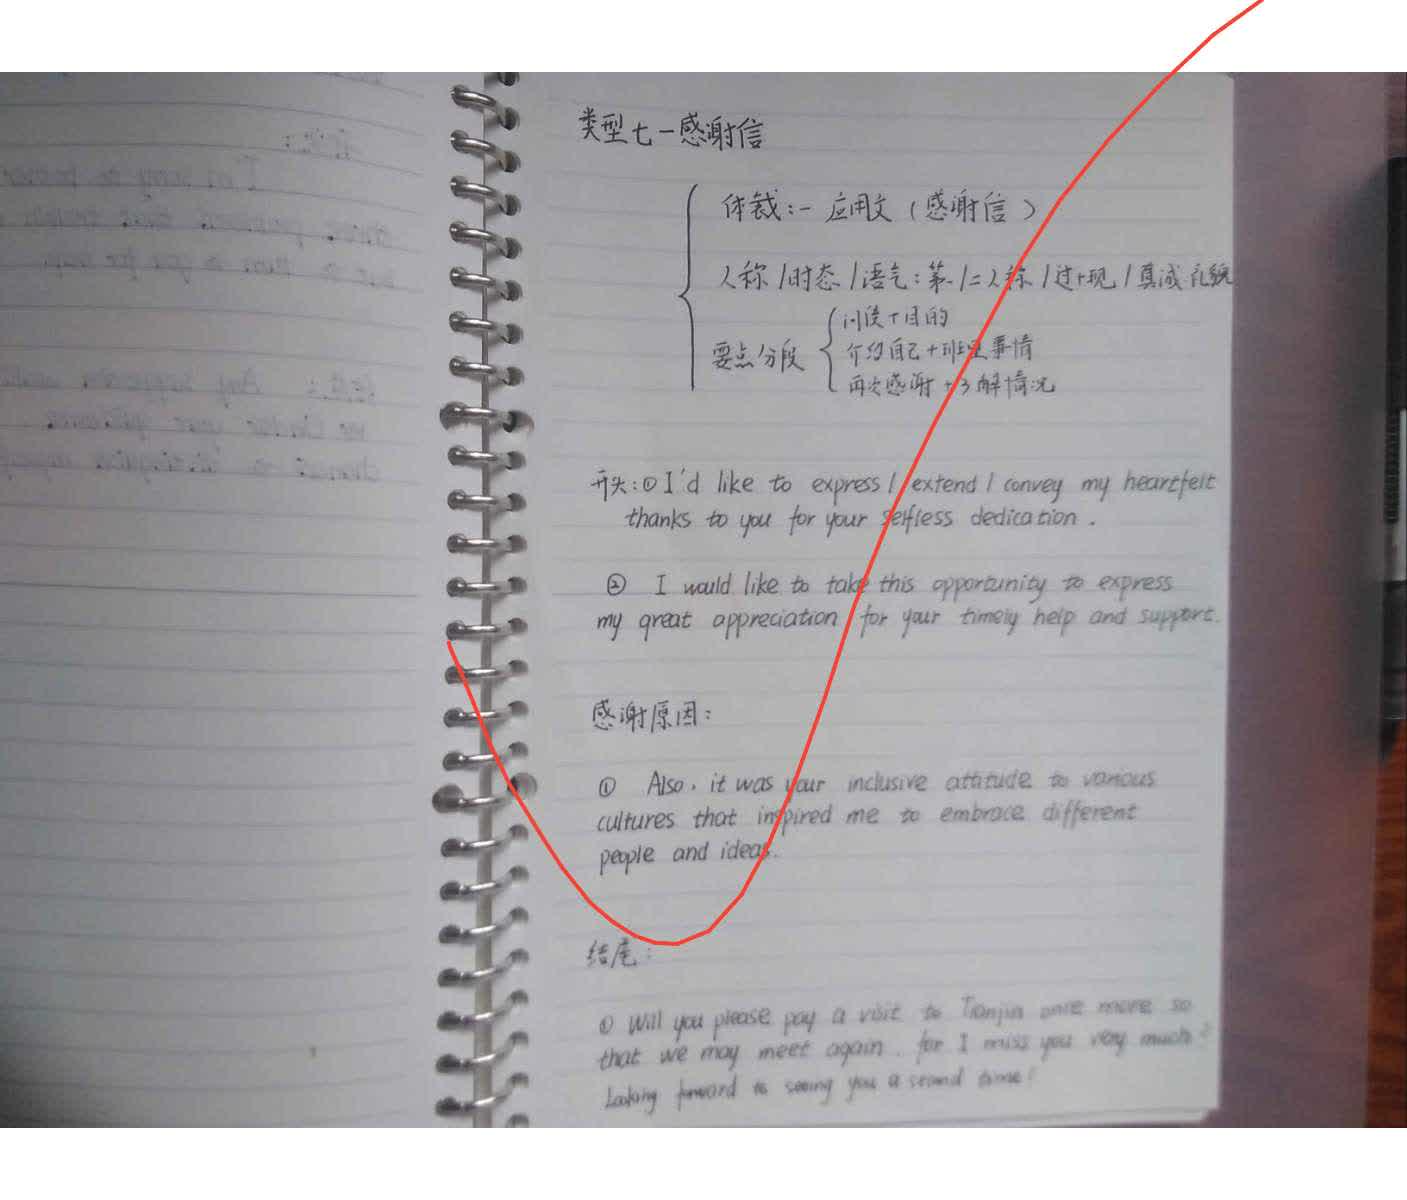 类型七-感谢信
体裁:-应用文(感谢信)
人称/时态/语气:第一/二人称/过+现/真诚礼貌
问侯+目的
要点分段
介绍自己+班理事情
再次感谢+了解情况
开头:① I'd like to express / extend / convey my heartfelt
thanks to you for your selfless dedication.
② I would like to take this opportunity to express
my great appreciation for your timely help and support.
感谢原因:
① Also, it was your inclusive attitude to various
cultures that inspired me to embrace different
people and ideas.
结尾:
① Will you please pay a visit to Tianjin once more so
that we may meet again, for I miss you very much?
Looking forward to seeing you a second time!